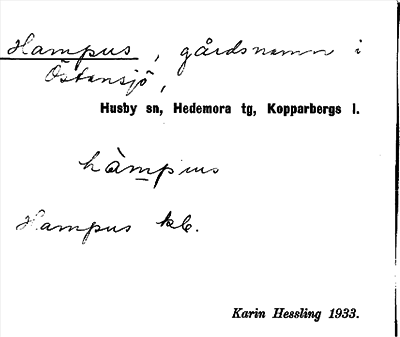 Hampus, gårdsnamn i
Östansjö,
Husby sn, Hedemora tg, Kopparbergs l.
hàmpus
Hampus kb.
Karin Hessling 1933.